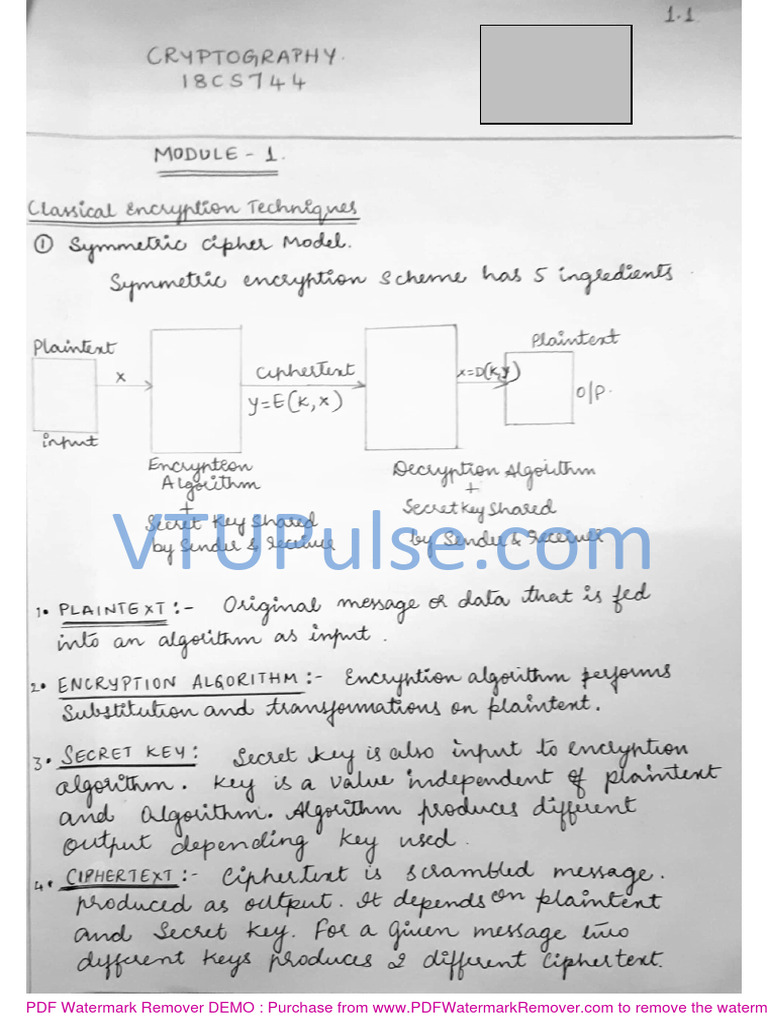 1.1
CRYPTOGRAPHY.
18CS744
MODULE - 1.
Classical Encryption Techniques
① Symmetric Cipher Model.
Symmetric encryption scheme has 5 ingredients.
Plaintext
input
x
Ciphertext
y=E(K,x)
x=D(K,y)
Plaintext
O/P.
Encryption
Algorithm
+
Secret Key Shared
by Sender & Receiver
Decryption Algorithm
+
Secret Key Shared
by Sender & Receiver
VTUPulse.com
1. PLAINTEXT :- Original message or data that is fed
into an algorithm as input.
2. ENCRYPTION ALGORITHM :- Encryption algorithm performs
Substitution and transformations on plaintext.
3. SECRET KEY: Secret key is also input to encryption
algorithm. Key is a value independent of plaintext
and Algorithm. Algorithm produces different
output depending key used.
4. CIPHERTEXT :- Ciphertext is scrambled message.
produced as output. It depends on plaintext
and Secret Key. For a given message two
different keys produces 2 different Ciphertext.
PDF Watermark Remover DEMO : Purchase from www.PDFWatermarkRemover.com to remove the waterm